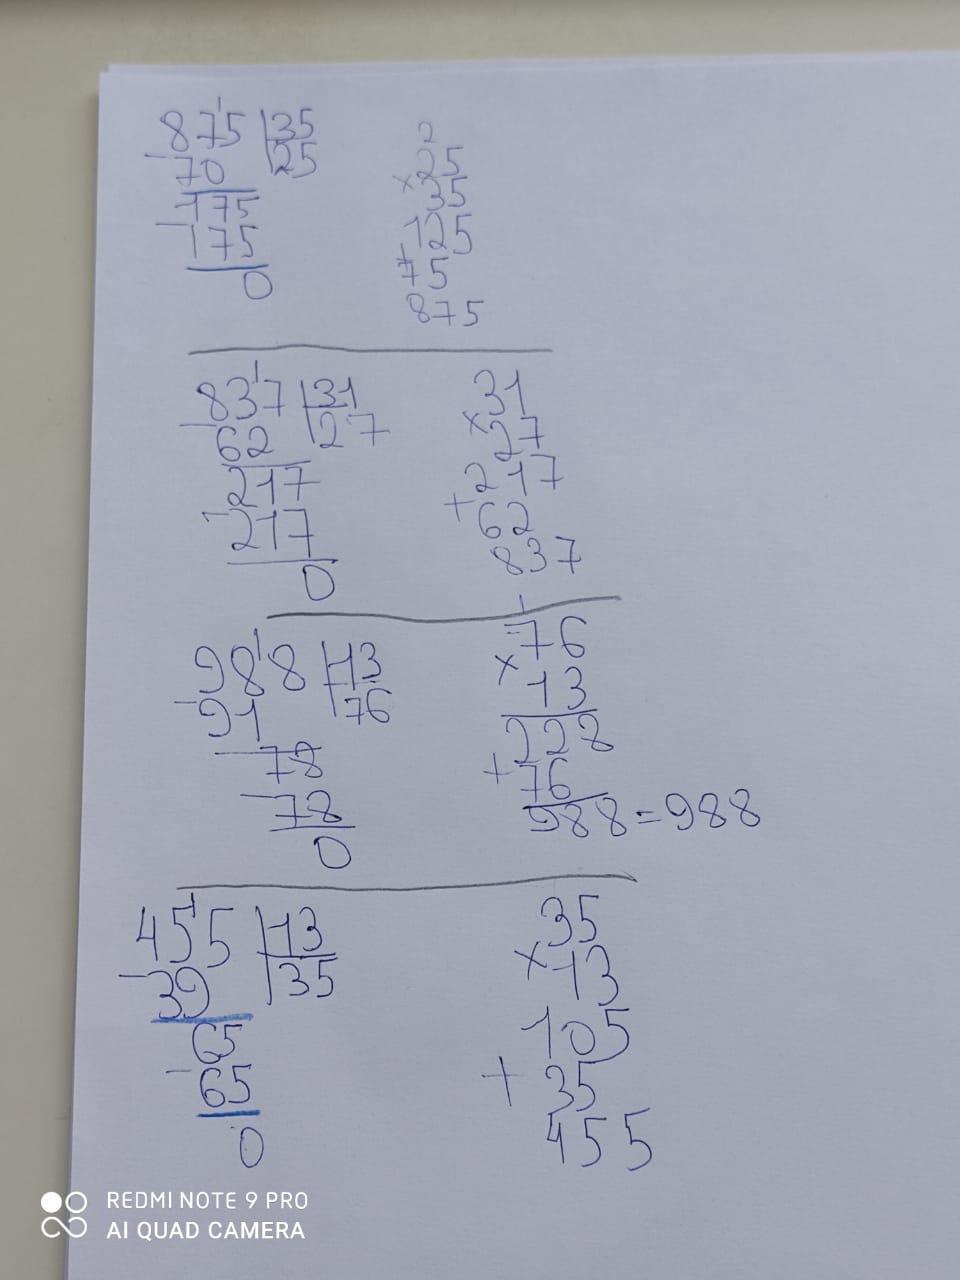 875 35
-70 25
-175
175
0
2
25
×35
125
+75
875
837 31
-62 27
-217
217
0
31
×27
217
+62
837
988 13
-91 76
-78
78
0
1
76
×13
228
+76
988=988
455 13
-39 35
-65
65
0
35
×13
105
+35
455
REDMI NOTE 9 PRO
AI QUAD CAMERA